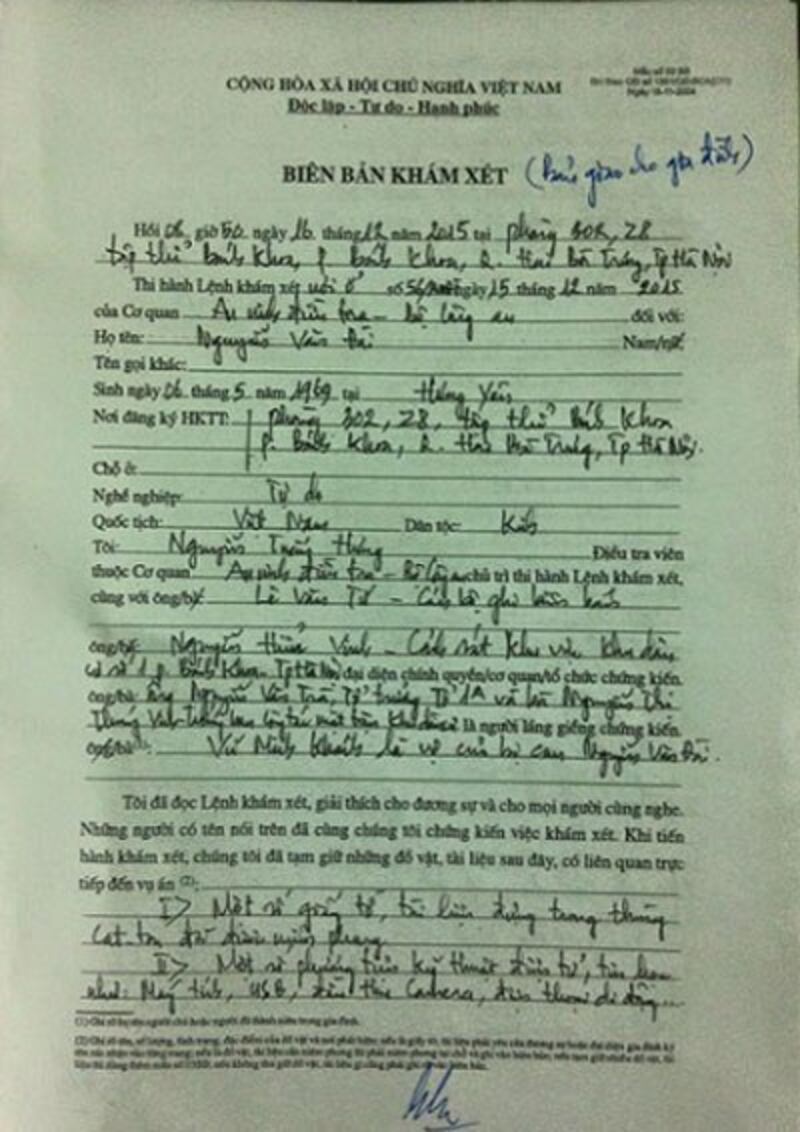 CỘNG HÒA XÃ HỘI CHỦ NGHĨA VIỆT NAM
Độc lập - Tự do - Hạnh phúc
BIÊN BẢN KHÁM XÉT (Bàn giao cho gia đình)
Hồi 06 giờ 50 ngày 16 tháng 12 năm 2015 tại phòng 302, Z8
tập thể Bách Khoa, P. Bách Khoa, Q. Hai Bà Trưng, Tp Hà Nội
Thi hành Lệnh khám xét nơi ở số ngày 15 tháng 12 năm 2015
của Cơ quan An ninh điều tra - Bộ Công an đối với:
Họ tên: Nguyễn Văn Đài Nam/nữ
Tên gọi khác:
Sinh ngày 06 tháng 5 năm 1969 tại Hưng Yên
Nơi đăng ký HKTT: phòng 302, Z8, tập thể Bách Khoa
P. Bách Khoa, Q. Hai Bà Trưng, Tp Hà Nội.
Chỗ ở:
Nghề nghiệp: Tự do
Quốc tịch: Việt Nam Dân tộc: Kinh
Tôi: Nguyễn Điều tra viên
thuộc Cơ quan An ninh điều tra - Bộ Công an chủ trì thi hành Lệnh khám xét,
cùng với ông/bà Lê Văn - Cán bộ ghi biên bản
ông/bà: Nguyễn - Cảnh sát khu vực
P. Bách Khoa - Tp Hà Nội đại diện chính quyền/cơ quan/tổ chức chứng kiến.
ông/bà: ông Nguyễn Văn Trà, Tổ trưởng Tổ 1A và bà Nguyễn Thị
là người láng giềng chứng kiến.
ông/bà (1): Vũ Minh Khánh là vợ của bị can Nguyễn Văn Đài.
Tôi đã đọc Lệnh khám xét, giải thích cho đương sự và cho mọi người cùng nghe.
Những người có tên nói trên đã cùng chúng tôi chứng kiến việc khám xét. Khi tiến
hành khám xét, chúng tôi đã tạm giữ những đồ vật, tài liệu sau đây, có liên quan trực
tiếp đến vụ án (2):
I> Một số giấy tờ, tài liệu đựng trong thùng
cat-ton đã được niêm phong
II> Một số phương tiện kỹ thuật điện tử,
như: Máy tính, USB, Camera, điện thoại di động...
(1) Ghi rõ họ tên người chủ hoặc người đã thành niên trong gia đình.